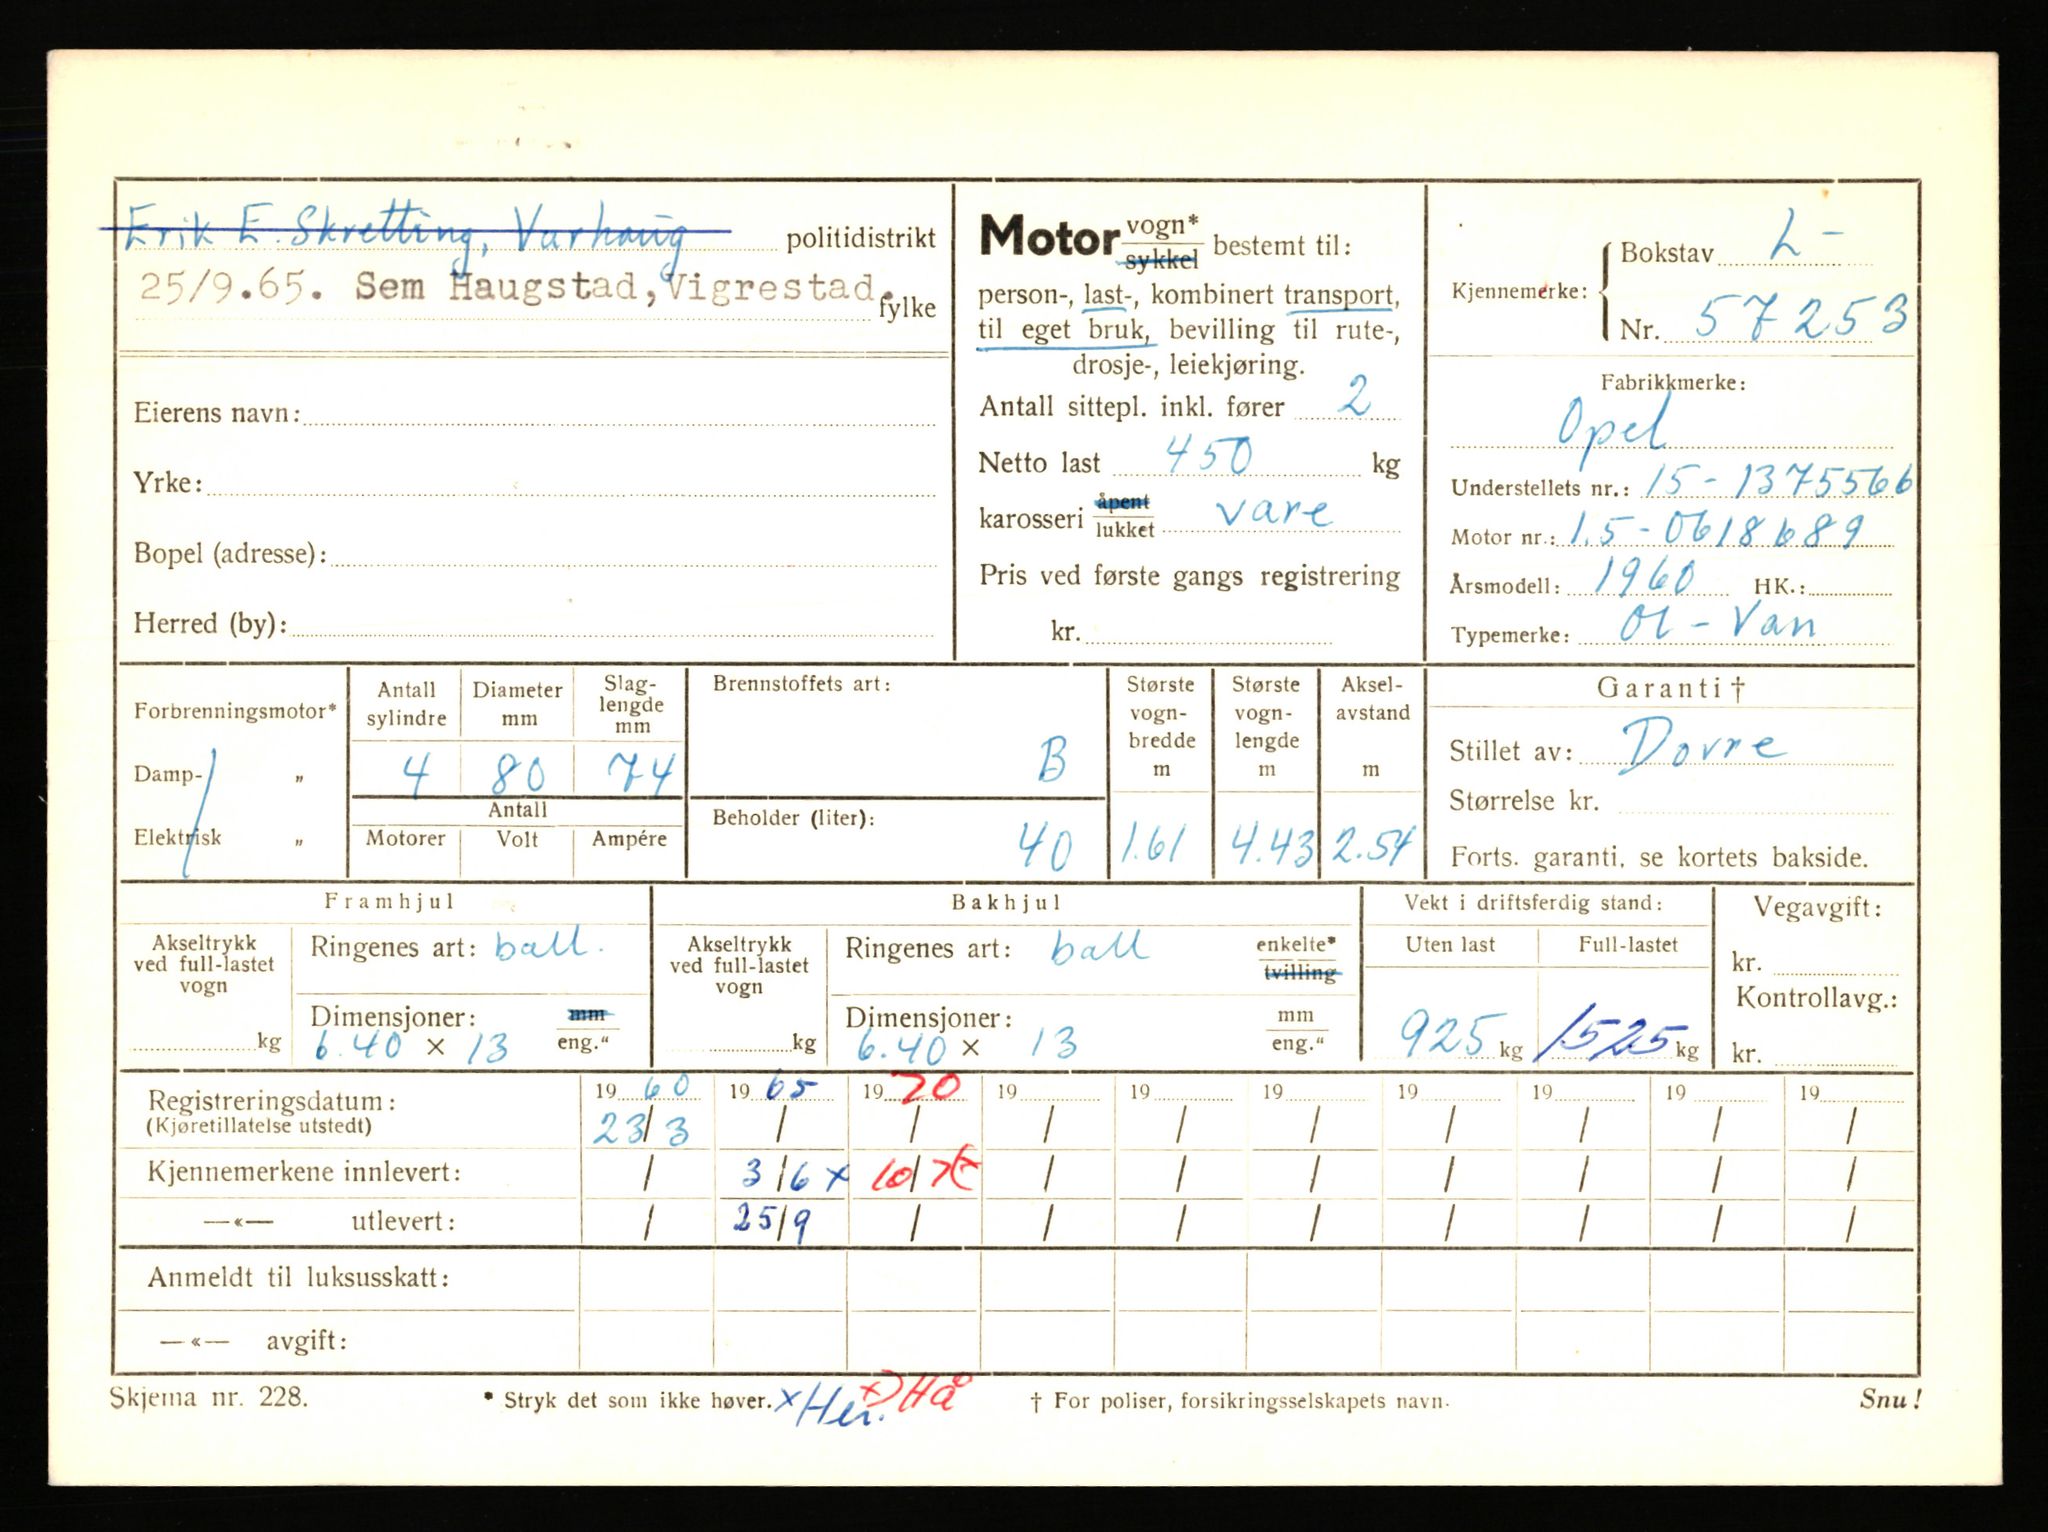 Erik E. Skretting, Varhaug politidistrikt
25/9.65. Sem Haugstad, Vigrestad. fylke
Eierens navn:
Yrke:
Bopel (adresse):
Herred (by):
Motor vogn* sykkel bestemt til:
person-, last-, kombinert transport,
til eget bruk, bevilling til rute-,
drosje-, leiekjøring.
Antall sittepl. inkl. fører 2
Netto last 450 kg
karosseri åpent lukket vare
Pris ved første gangs registrering
kr.
Kjennemerke: Bokstav L-
Nr. 57253
Fabrikkmerke:
Opel
Understellets nr.: 15-1375566
Motor nr.: 1.5-0618689
Årsmodell: 1960 HK.:
Typemerke: Ol-Van
Forbrenningsmotor*
Damp- „
Elektrisk „
Antall sylindre 4
Diameter mm 80
Slag-lengde mm 74
Antall
Motorer Volt Ampére
Brennstoffets art:
B
Beholder (liter):
40
Største vogn-bredde m 1.61
Største vogn-lengde m 4.43
Aksel-avstand m 2.54
Garanti †
Stillet av: Dovre
Størrelse kr.
Forts. garanti, se kortets bakside.
Framhjul
Akseltrykk ved full-lastet vogn
kg
Ringenes art: ball.
Dimensjoner: mm
6.40 × 13 eng."
Bakhjul
Akseltrykk ved full-lastet vogn
kg
Ringenes art: ball enkelte* tvilling
Dimensjoner: mm
6.40 × 13 eng."
Vekt i driftsferdig stand:
Uten last Full-lastet
925 kg 1525 kg
Vegavgift:
kr.
Kontrollavg.:
kr.
19 60 19 65 19 70 19 19 19 19 19 19 19
Registreringsdatum:
(Kjøretillatelse utstedt) 23/3 / / / / / / / / /
Kjennemerkene innlevert: / 3/6 x 10/7 x / / / / / / /
—«— utlevert: / 25/9 / / / / / / / /
Anmeldt til luksusskatt:
—«— avgift:
Skjema nr. 228. * Stryk det som ikke høver. x x) Hå † For poliser, forsikringsselskapets navn. Snu!